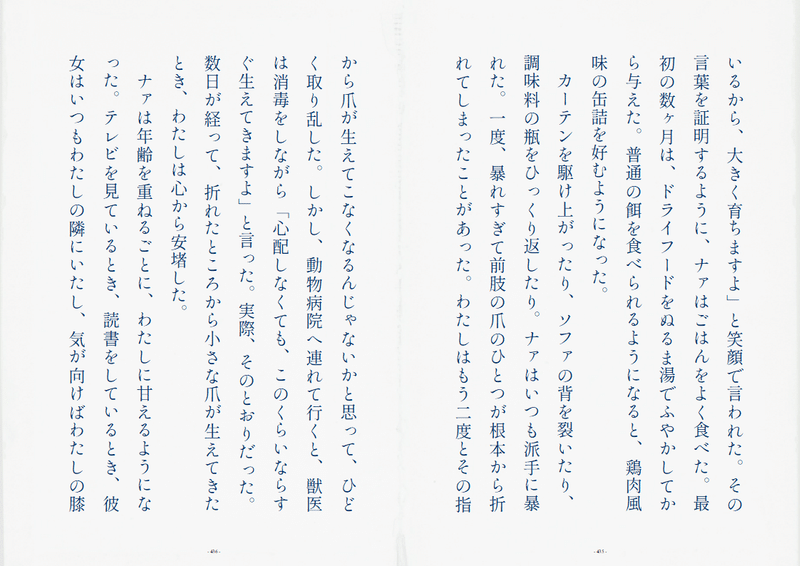 いるから、大きく育ちますよ」と笑顔で言われた。その
言葉を証明するように、ナァはごはんをよく食べた。最
初の数ヶ月は、ドライフードをぬるま湯でふやかしてか
ら与えた。普通の餌を食べられるようになると、鶏肉風
味の缶詰を好むようになった。
カーテンを駆け上がったり、ソファの背を裂いたり、
調味料の瓶をひっくり返したり。ナァはいつも派手に暴
れた。一度、暴れすぎて前肢の爪のひとつが根本から折
れてしまったことがあった。わたしはもう二度とその指
から爪が生えてこなくなるんじゃないかと思って、ひど
く取り乱した。しかし、動物病院へ連れて行くと、獣医
は消毒をしながら「心配しなくても、このくらいならす
ぐ生えてきますよ」と言った。実際、そのとおりだった。
数日が経って、折れたところから小さな爪が生えてきた
とき、わたしは心から安堵した。
ナァは年齢を重ねるごとに、わたしに甘えるようにな
った。テレビを見ているとき、読書をしているとき、彼
女はいつもわたしの隣にいたし、気が向けばわたしの膝